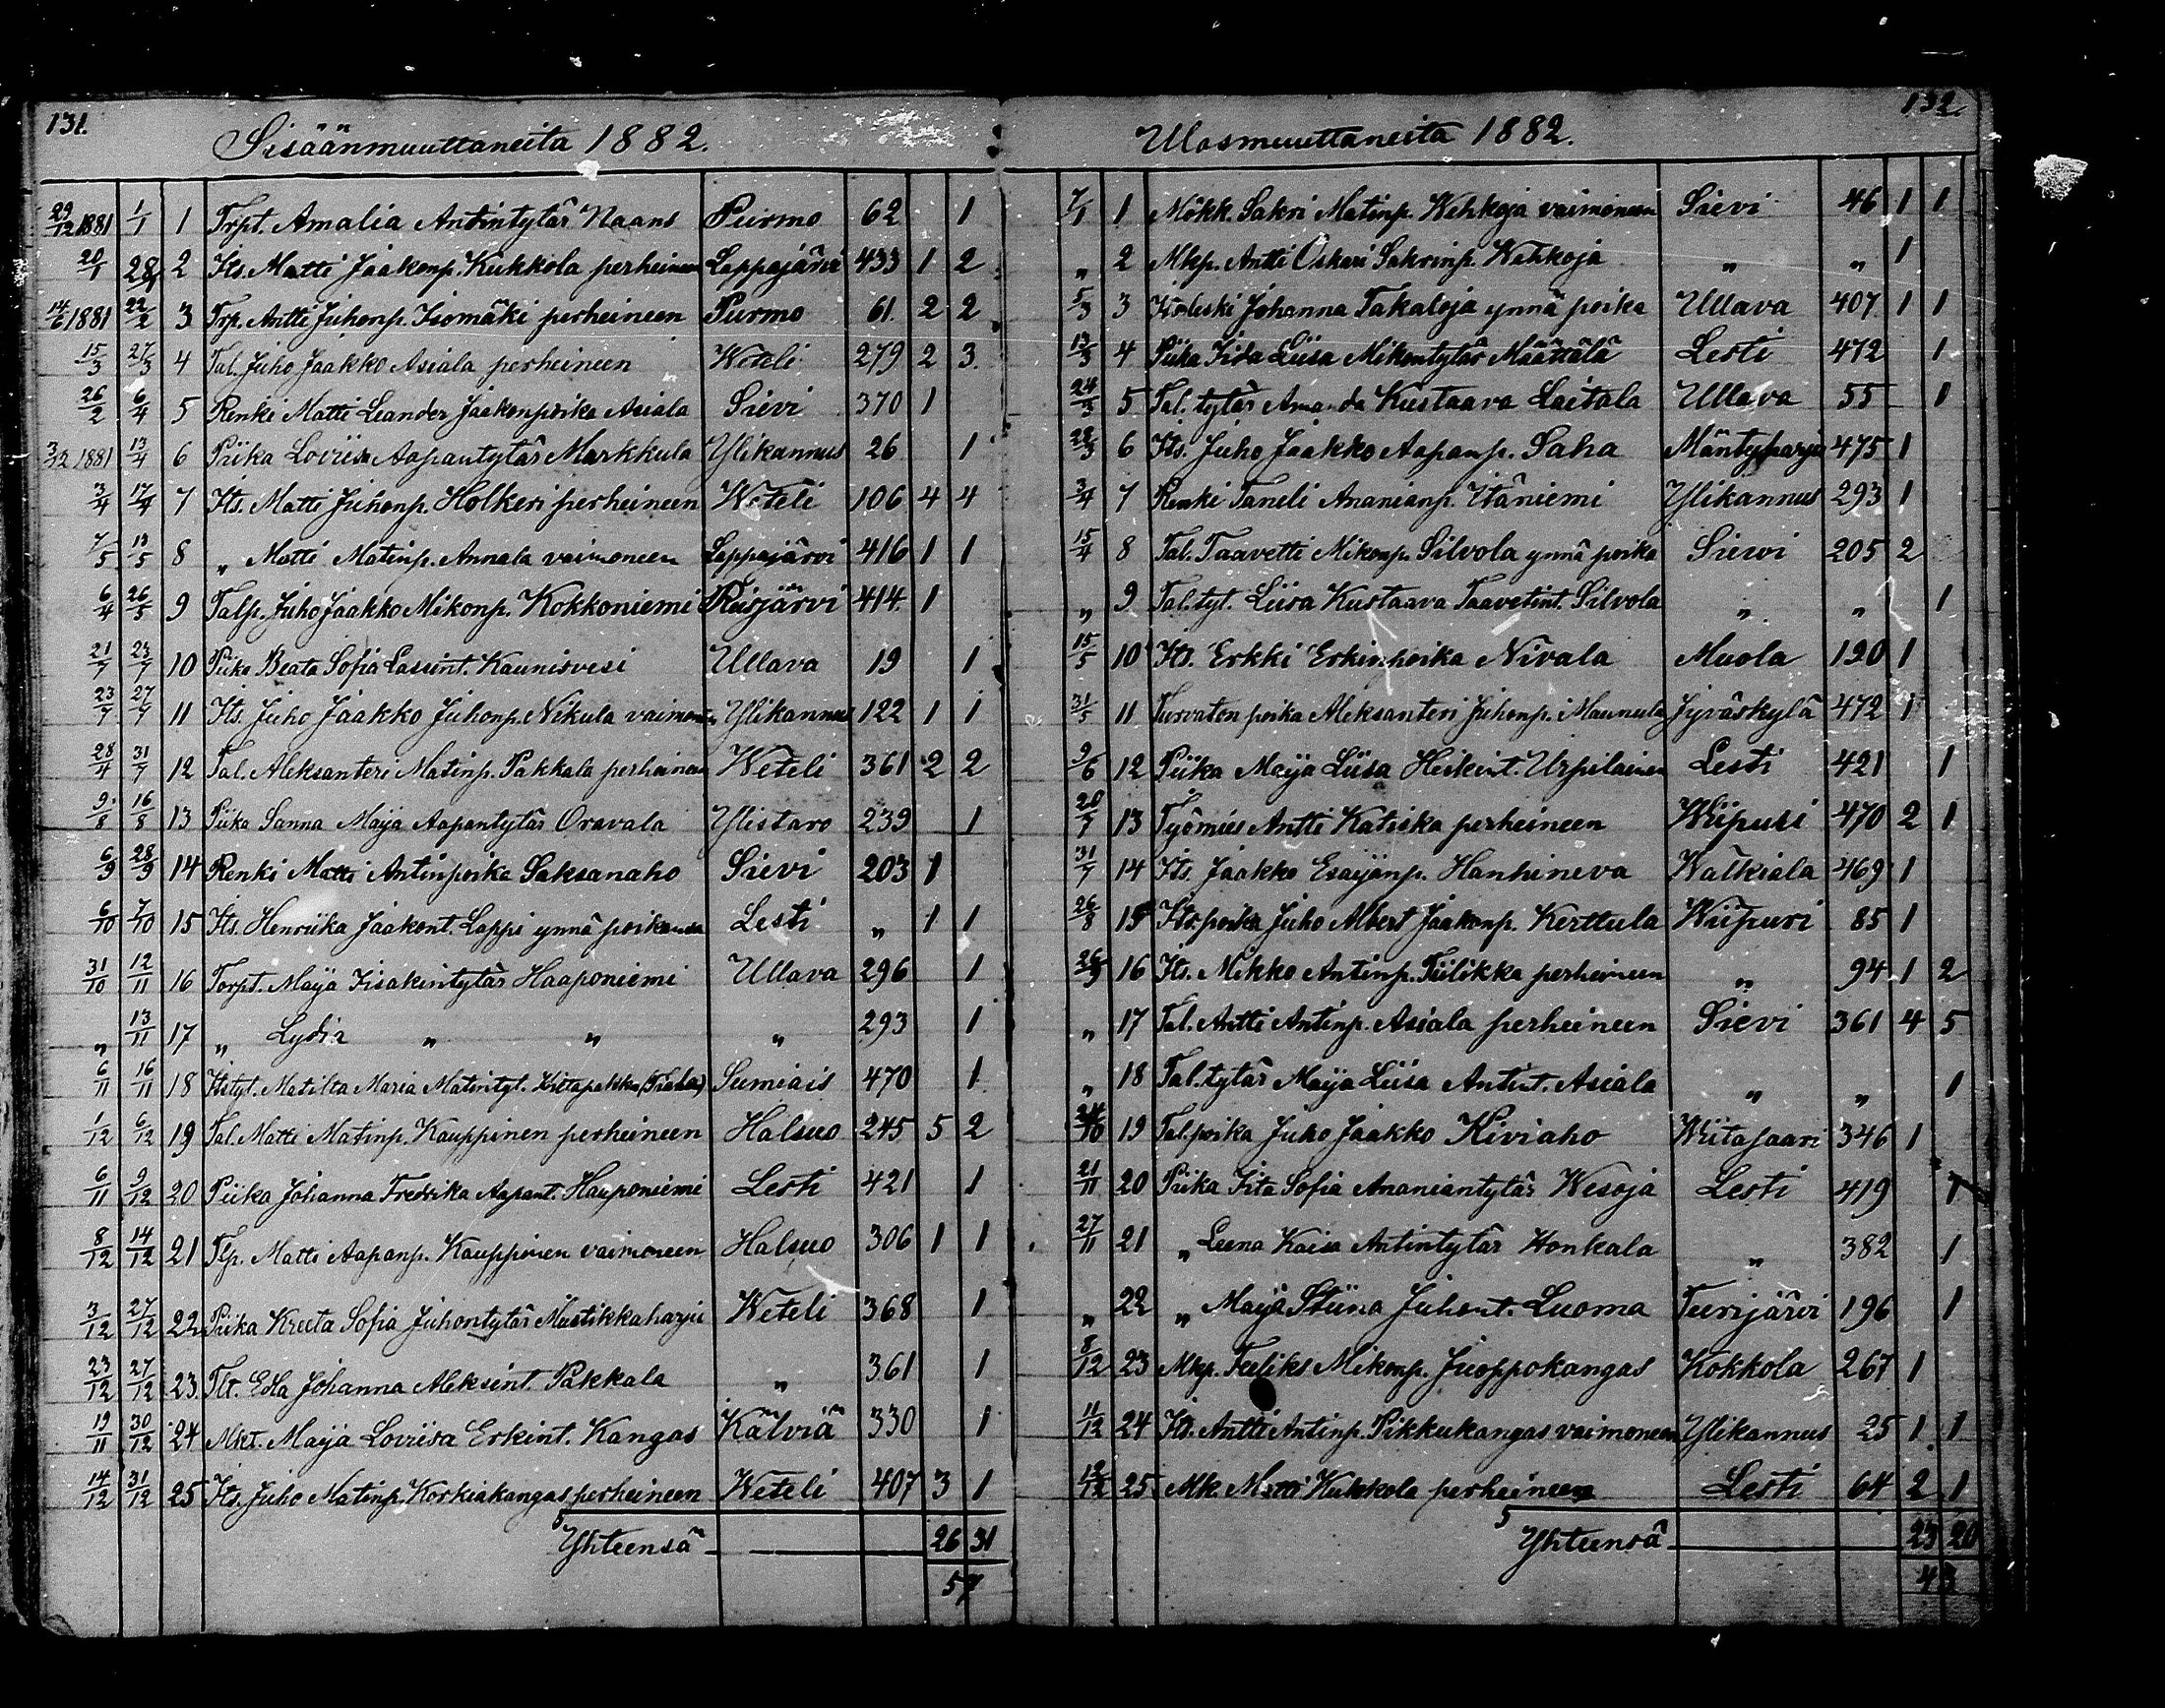 131.
Sisäänmuuttaneita 1882.
29/12 1881 1/1 1 Trpt. Amalia Antintytär Haans Purmo 62 1
20/1 28/1 2 Its. Matti Jaakonp. Kukkola perheineen Lappajärvi 433 1 2
14/6 1881 22/2 3 Trp. Antti Juhonp. Isomäki perheineen Purmo 61 2 2
15/3 27/3 4 Tal. Juho Jaakko Asiala perheineen Weteli 279 2 3
26/2 6/4 5 Renki Matti Leander Jaakonpoika Asiala Sievi 370 1
3/12 1881 13/4 6 Piika Loviisa Aapantytär Markkula Ylikannus 26 1
3/4 17/4 7 Its. Matti Juhonp. Holkeri perheineen Weteli 106 4 4
7/5 13/5 8 „ Matti Matinp. Annala vaimoneen Lappajärvi 416 1 1
6/4 26/5 9 Talp. Juho Jaakko Mikonp. Kokkoniemi Reisjärvi 414 1
21/7 23/7 10 Piika Beata Sofia Lassint. Kaunisvesi Ullava 19 1
23/7 27/7 11 Its. Juho Jaakko Juhonp. Nikula vaimoneen Ylikannus 122 1 1
28/4 31/7 12 Tal. Aleksanteri Matinp. Pakkala perheineen Weteli 361 2 2
9/8 16/8 13 Piika Sanna Maija Aapantytär Oravala Ylistaro 239 1
6/9 28/9 14 Renki Matti Antinpoika Saksanaho Sievi 203 1
6/10 7/10 15 Its. Henriika Jaakont. Lappi ynnä poikansa Lesti „ 1 1
31/10 12/11 16 Torpt. Maija Iisakintytär Haaponiemi Ullava 296 1
„ 13/11 17 „ Lydia „ „ „ 293 1
6/11 16/11 18 Itstyt. Matilta Maria Matintyt. Sumiais 470 1
1/12 6/12 19 Tal. Matti Matinp. Kauppinen perheineen Halsuo 245 5 2
6/11 9/12 20 Piika Johanna Fredrika Aapant. Haaponiemi Lesti 421 1
8/12 14/12 21 Tlp. Matti Aapanp. Kauppinen vaimoneen Halsuo 306 1 1
3/12 27/12 22 Piika Kreeta Sofia Juhontytär Mustikkaharju Weteli 368 1
23/12 27/12 23 Tlt. Edla Johanna Aleksint. Pakkala „ 361 1
19/11 30/12 24 Mkt. Maija Loviisa Erkint. Kangas Kälviä 330 1
14/12 31/12 25 Its. Juho Matinp. Korkiakangas perheineen Weteli 407 3 1
Yhteensä 26 31
57
132
Ulosmuuttaneita 1882.
7/1 1 Mökk. Sakri Matinp. Wehkoja vaimoneen Sievi 46 1 1
„ 2 Mkp. Antti Oskari Sakrinp. Wehkoja „ „ 1
5/3 3 Itsleski Johanna Takaloja ynnä poika Ullava 407 1 1
13/3 4 Piika Iida Liisa Mikontytär Määttälä Lesti 472 1
24/3 5 Tal. tytär Amanda Kustaava Laitala Ullava 55 1
28/3 6 Its. Juho Jaakko Aapanp. Saha Mäntyharju 475 1
3/4 7 Renki Taneli Ananianp. Itäniemi Ylikannus 293 1
15/4 8 Tal. Taavetti Mikonp. Silvola ynnä poika Siewi 205 2
„ 9 Tal. tyt. Liisa Kustaava Taavetint. Silvola „ „ 1
15/5 10 Its. Erkki Erkinpoika Nivala Muola 190 1
31/5 11 Turvaton poika Aleksanteri Juhonp. Maunula Jyväskylä 472 1
9/6 12 Piika Maija Liisa Heikint. Urpilainen Lesti 421 1
20/7 13 Työmies Antti Katiska perheineen Wiipuri 470 2 1
31/7 14 Its. Jaakko Esaijanp. Hanhineva Walkiala 469 1
26/8 15 Its. poika Juho Albert Jaakonp. Kerttula Wiipuri 85 1
26/9 16 Its. Mikko Antinp. Tiilikka perheineen „ 94 1 2
„ 17 Tal. Antti Antinp. Asiala perheineen Sievi 361 4 5
„ 18 Tal. tytär Maija Liisa Antint. Asiala „ „ 1
24/10 19 Tal. poika Juho Jaakko Kiviaho Wiitasaari 346 1
21/11 20 Piika Iita Sofia Ananiantytär Wesoja Lesti 419 1
27/11 21 „ Leena Kaisa Antintytär Honkala „ 382 1
„ 22 „ Maija Stiina Juhont. Luoma Teerijärvi 196 1
8/12 23 Mkp. Feeliks Mikonp. Juoppokangas Kokkola 267 1
11/12 24 Its. Antti Antinp. Pikkukangas vaimoneen Ylikannus 25 1 1
12/12 25 Mk. Matti Kukkola perheineen Lesti 64 2 1
Yhteensä 23 20
43